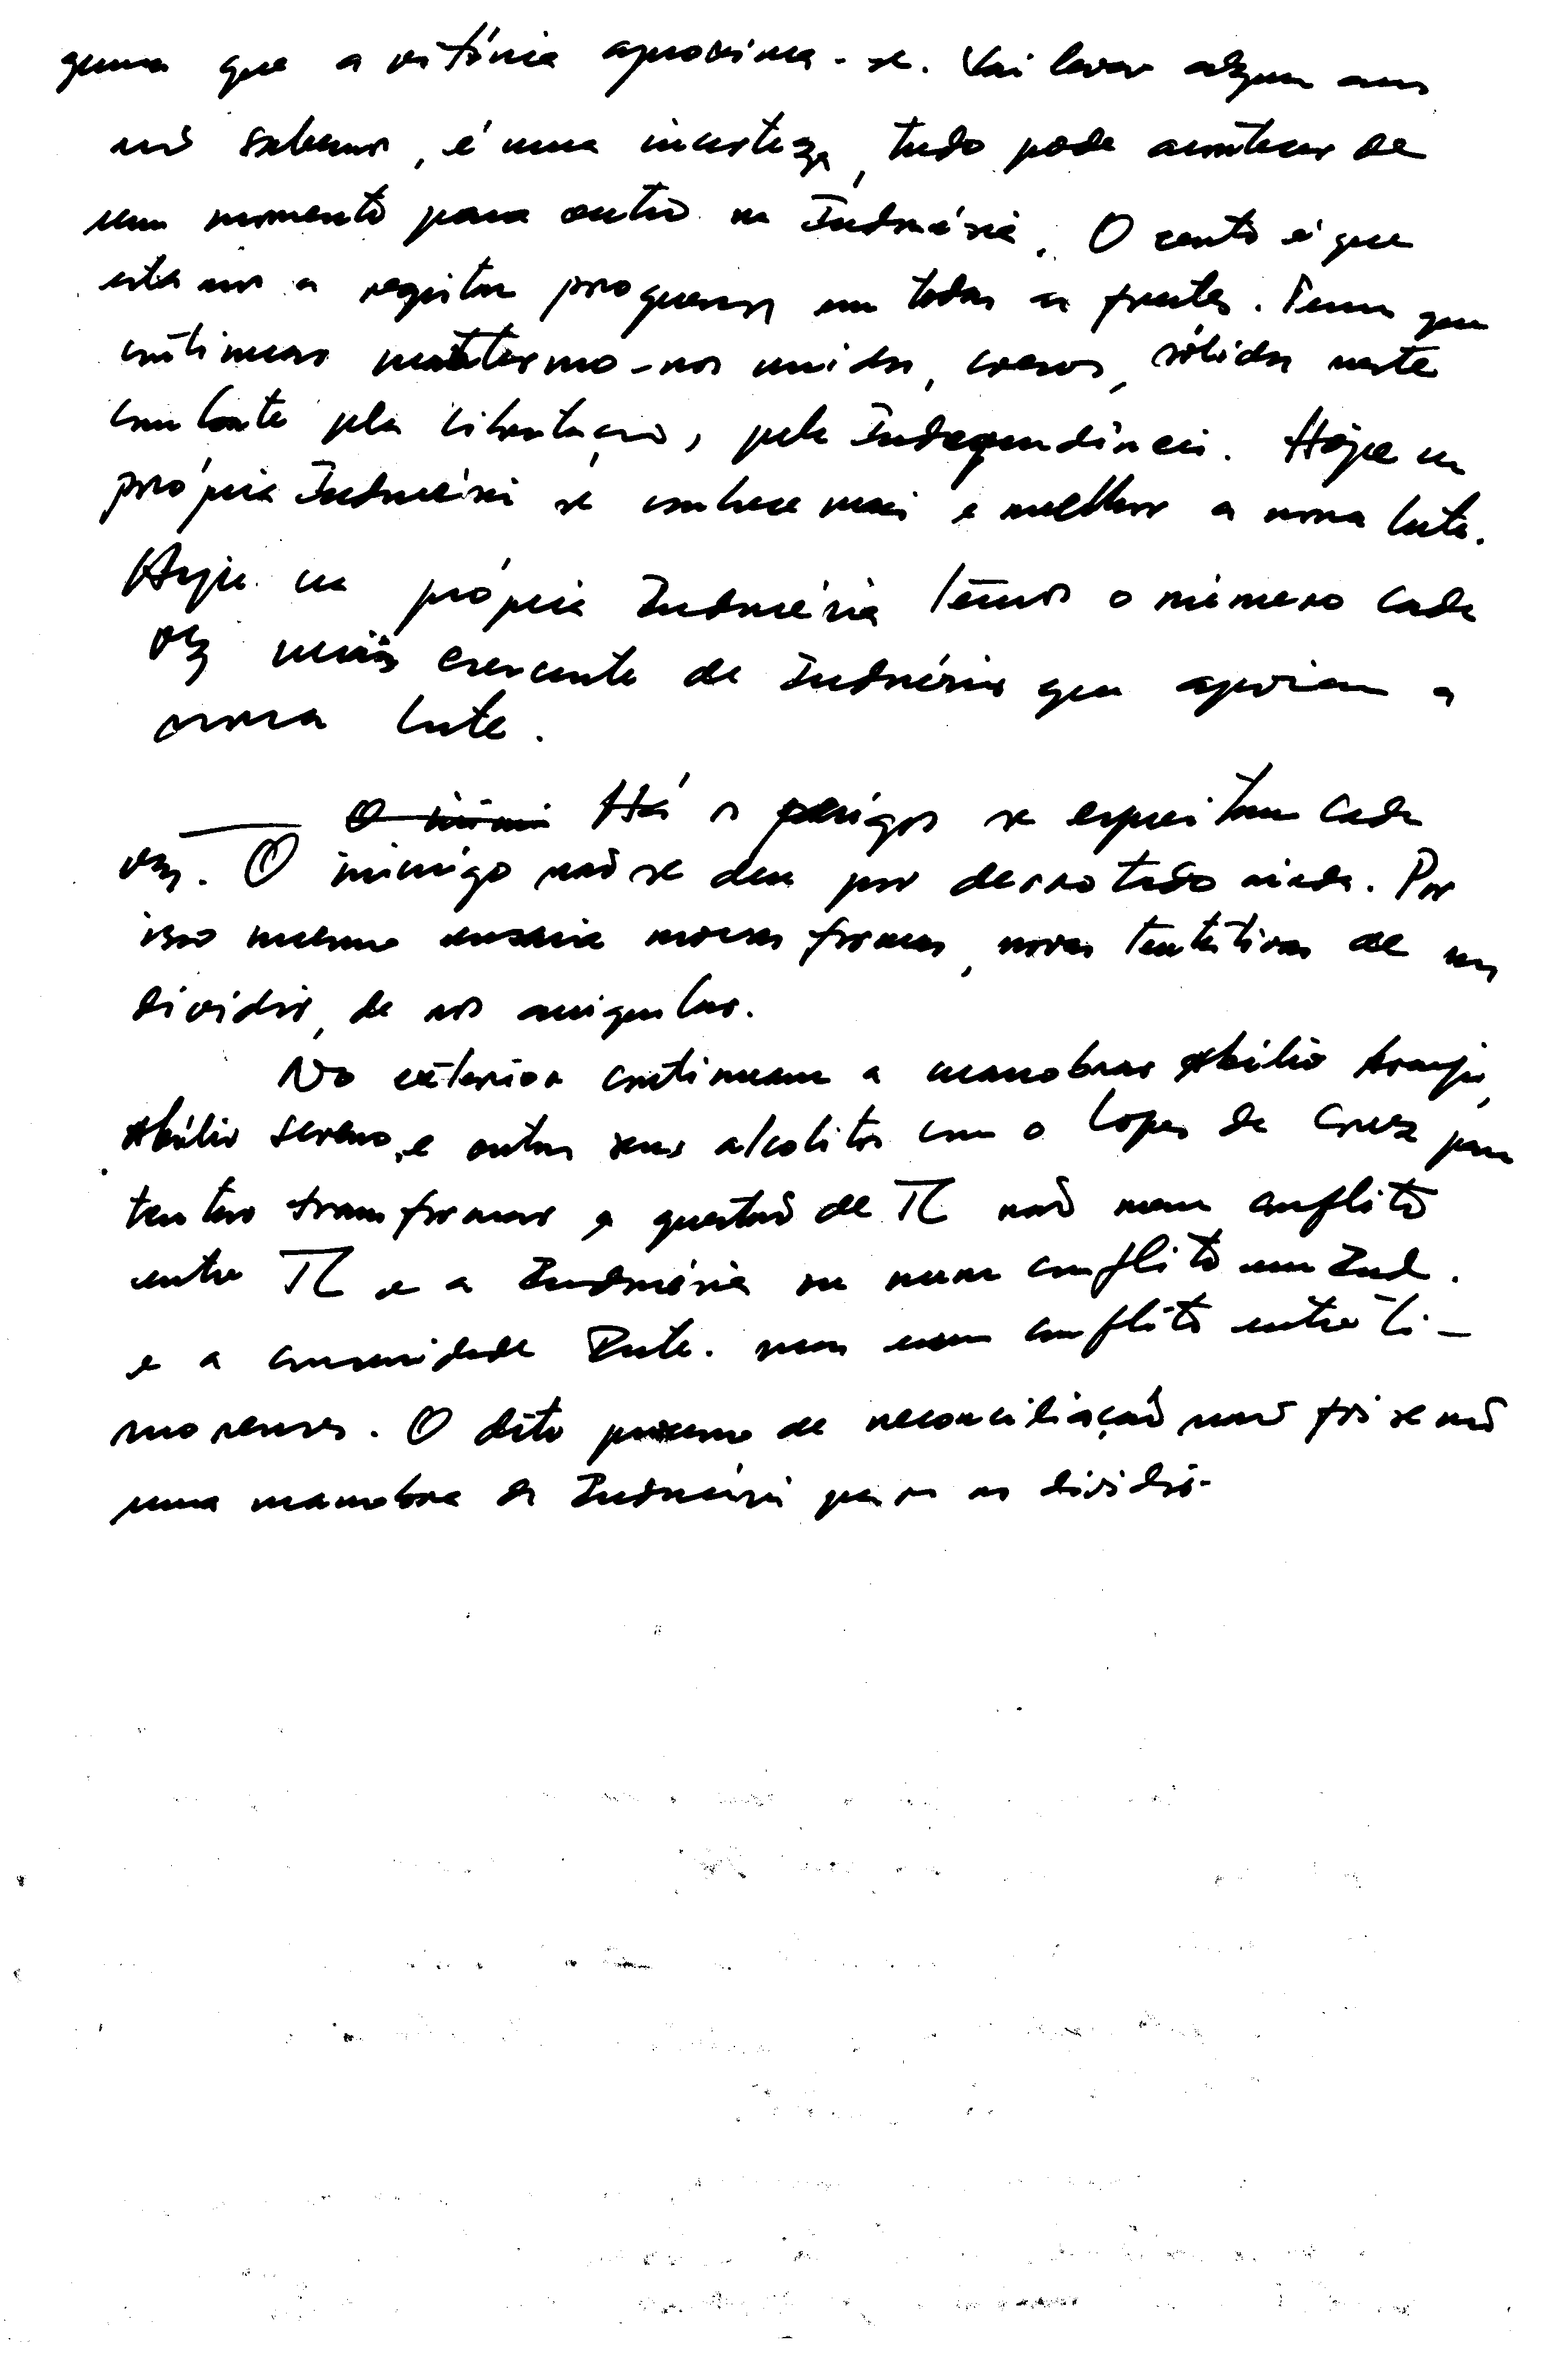 que a vitória aproxima-se. Vai levar algum
não sabemos, é uma incerteza, tudo pode acontecer de
um momento para outro na Indonésia. O certo é que
estamos a registar progressos em todas as frentes. Temos que
continuar mantermo-nos unidos, coesos, sólidos neste
combate pela libertação, pela Independência. Hoje na
própria Indonésia se conhece mais e melhor a nossa luta.
Hoje na própria Indonésia temos o número cada
vez mais crescente de Indonésios que apoiam a
nossa luta.
Há os perigos se espreitam cada
vez. O inimigo não se deu por derrotado ainda. Por
isso mesmo ensaia novas formas, novas tentativas de nos
dividir, de nos aniquilar.
No exterior continuam a manobrar Abílio Araujo,
Abílio Sereno, e outros seus alcolitos com o Lopes da Cruz para
tentar transformar a questão de TL não num conflito
entre TL e a Indonésia ou num conflito em Ind.
e a comunidade Inte. mas num conflito entre ti-
morenses. O dito processo de reconciliação não foi se não
uma manobra da Indonésia para os dividir.